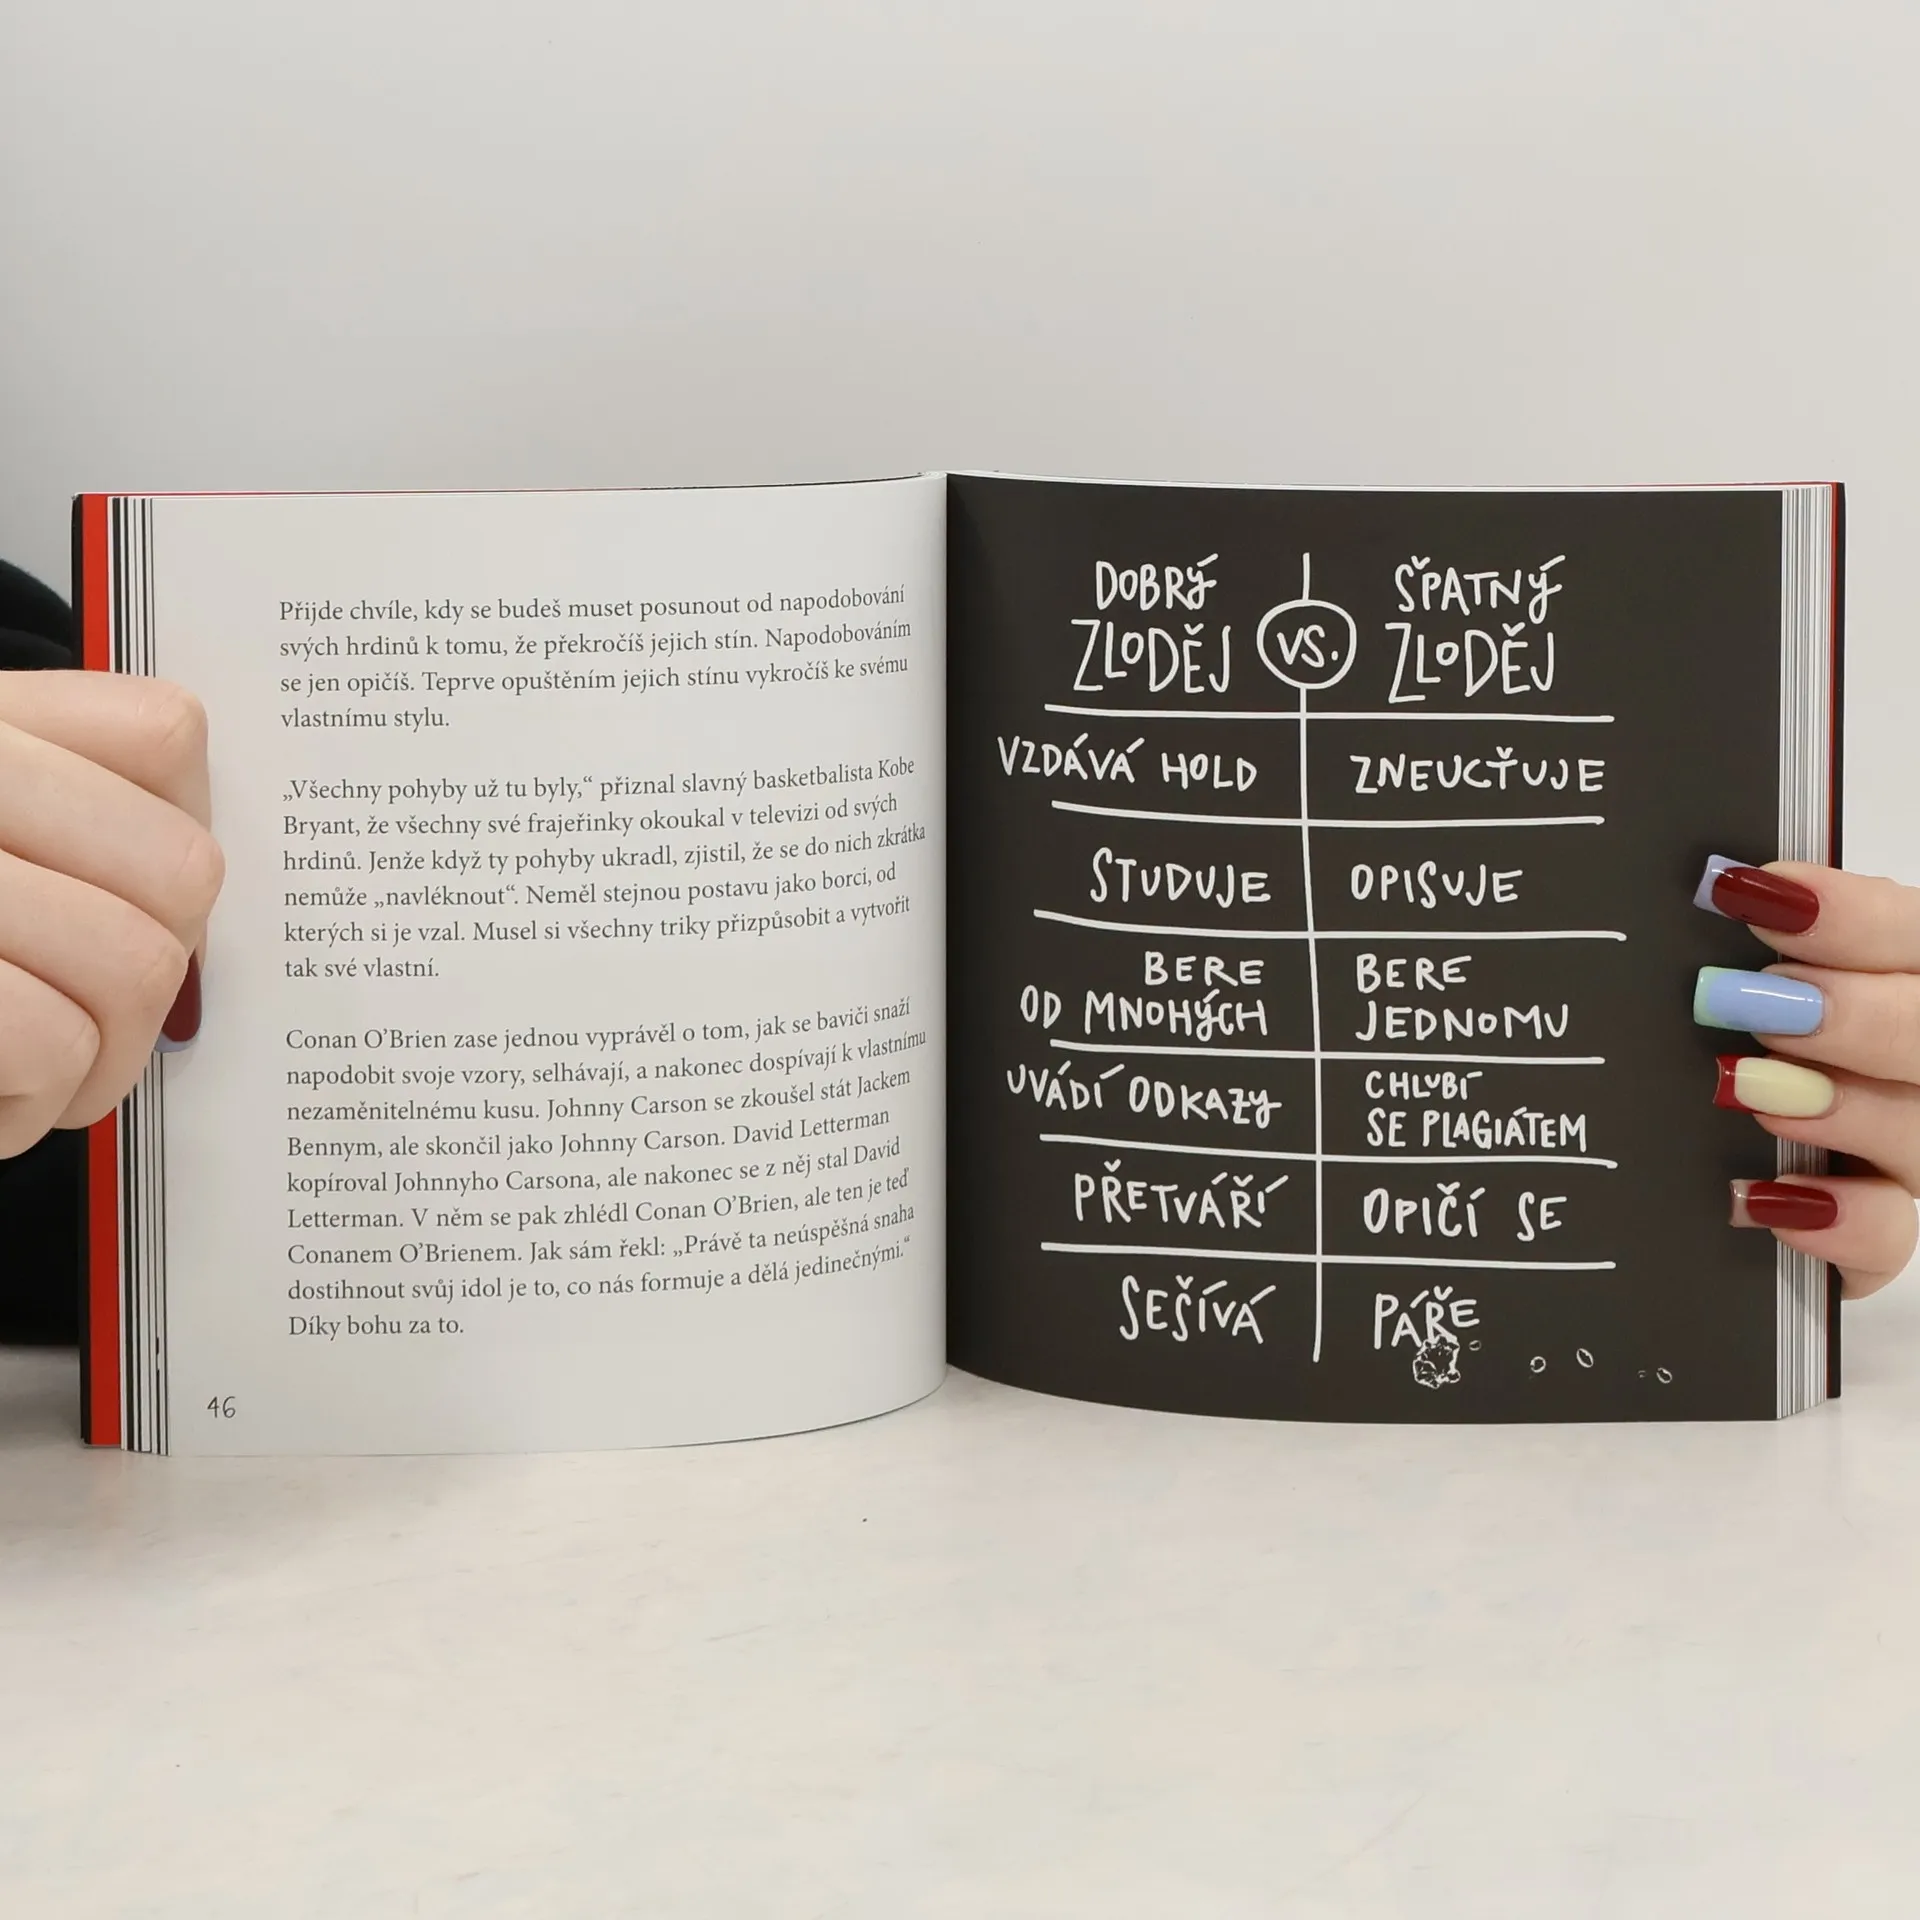 Přijde chvíle, kdy se budeš muset posunout od napodobování
svých hrdinů k tomu, že překročíš jejich stín. Napodobováním
se jen opičíš. Teprve opuštěním jejich stínu vykročíš ke svému
vlastnímu stylu.
„Všechny pohyby už tu byly,“ přiznal slavný basketbalista Kobe
Bryant, že všechny své frajeřinky okoukal v televizi od svých
hrdinů. Jenže když ty pohyby ukradl, zjistil, že se do nich zkrátka
nemůže „navléknout“. Neměl stejnou postavu jako borci, od
kterých si je vzal. Musel si všechny triky přizpůsobit a vytvořit
tak své vlastní.
Conan O’Brien zase jednou vyprávěl o tom, jak se baviči snaží
napodobit svoje vzory, selhávají, a nakonec dospívají k vlastnímu
nezaměnitelnému kusu. Johnny Carson se zkoušel stát Jackem
Bennym, ale skončil jako Johnny Carson. David Letterman
kopíroval Johnnyho Carsona, ale nakonec se z něj stal David
Letterman. V něm se pak zhlédl Conan O’Brien, ale ten je teď
Conanem O’Brienem. Jak sám řekl: „Právě ta neúspěšná snaha
dostihnout svůj idol je to, co nás formuje a dělá jedinečnými.“
Díky bohu za to.
46
DOBRÝ ŠPATNÝ
ZLODĚJ VS. ZLODĚJ
VZDÁVÁ HOLD ZNEUCŤUJE
STUDUJE OPISUJE
BERE BERE
OD MNOHÝCH JEDNOMU
UVÁDÍ ODKAZY CHLUBÍ
SE PLAGIÁTEM
PŘETVÁŘÍ OPIČÍ SE
SEŠÍVÁ PÁŘE